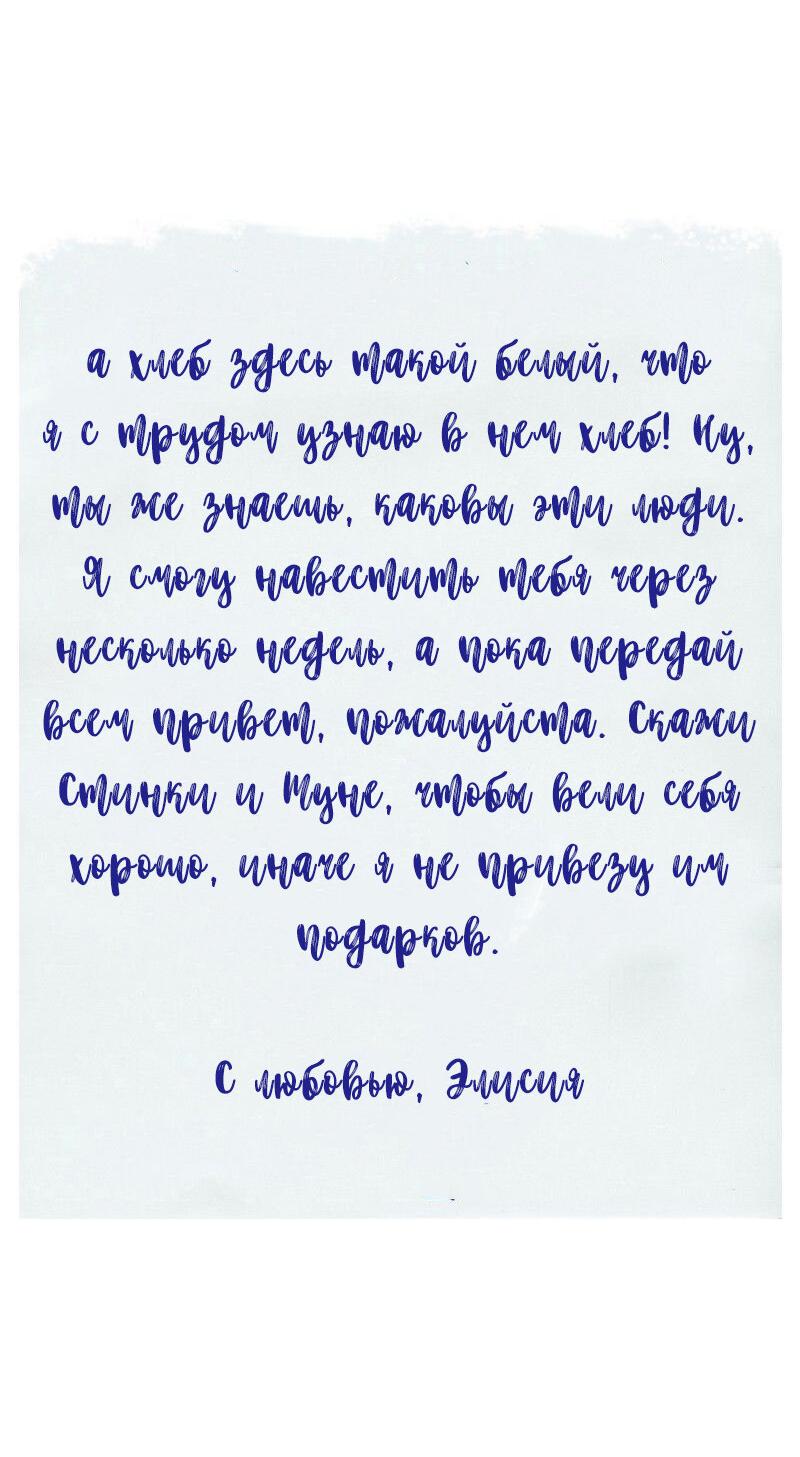 а хлеб здесь такой белый, что
я с трудом узнаю в нем хлеб! Ну,
ты же знаешь, каковы эти люди.
Я смогу навестить тебя через
несколько недель, а пока передай
всем привет, пожалуйста. Скажи
Стинки и Туне, чтобы вели себя
хорошо, иначе я не привезу им
подарков.
С любовью, Элисия